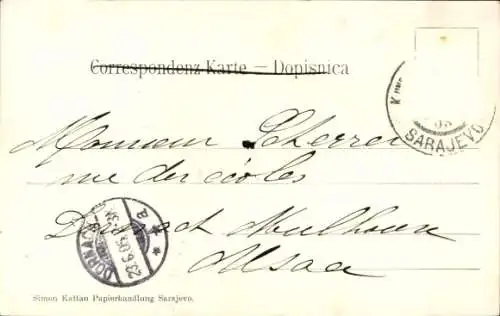 Correspondenz-Karte — Dopisnica
SARAJEVO
Monsieur Scherrer
rue des écoles
Dornach Mulhouse
Alsace
DORNACH
23.6.05
Simon Kattan Papierhandlung Sarajevo.